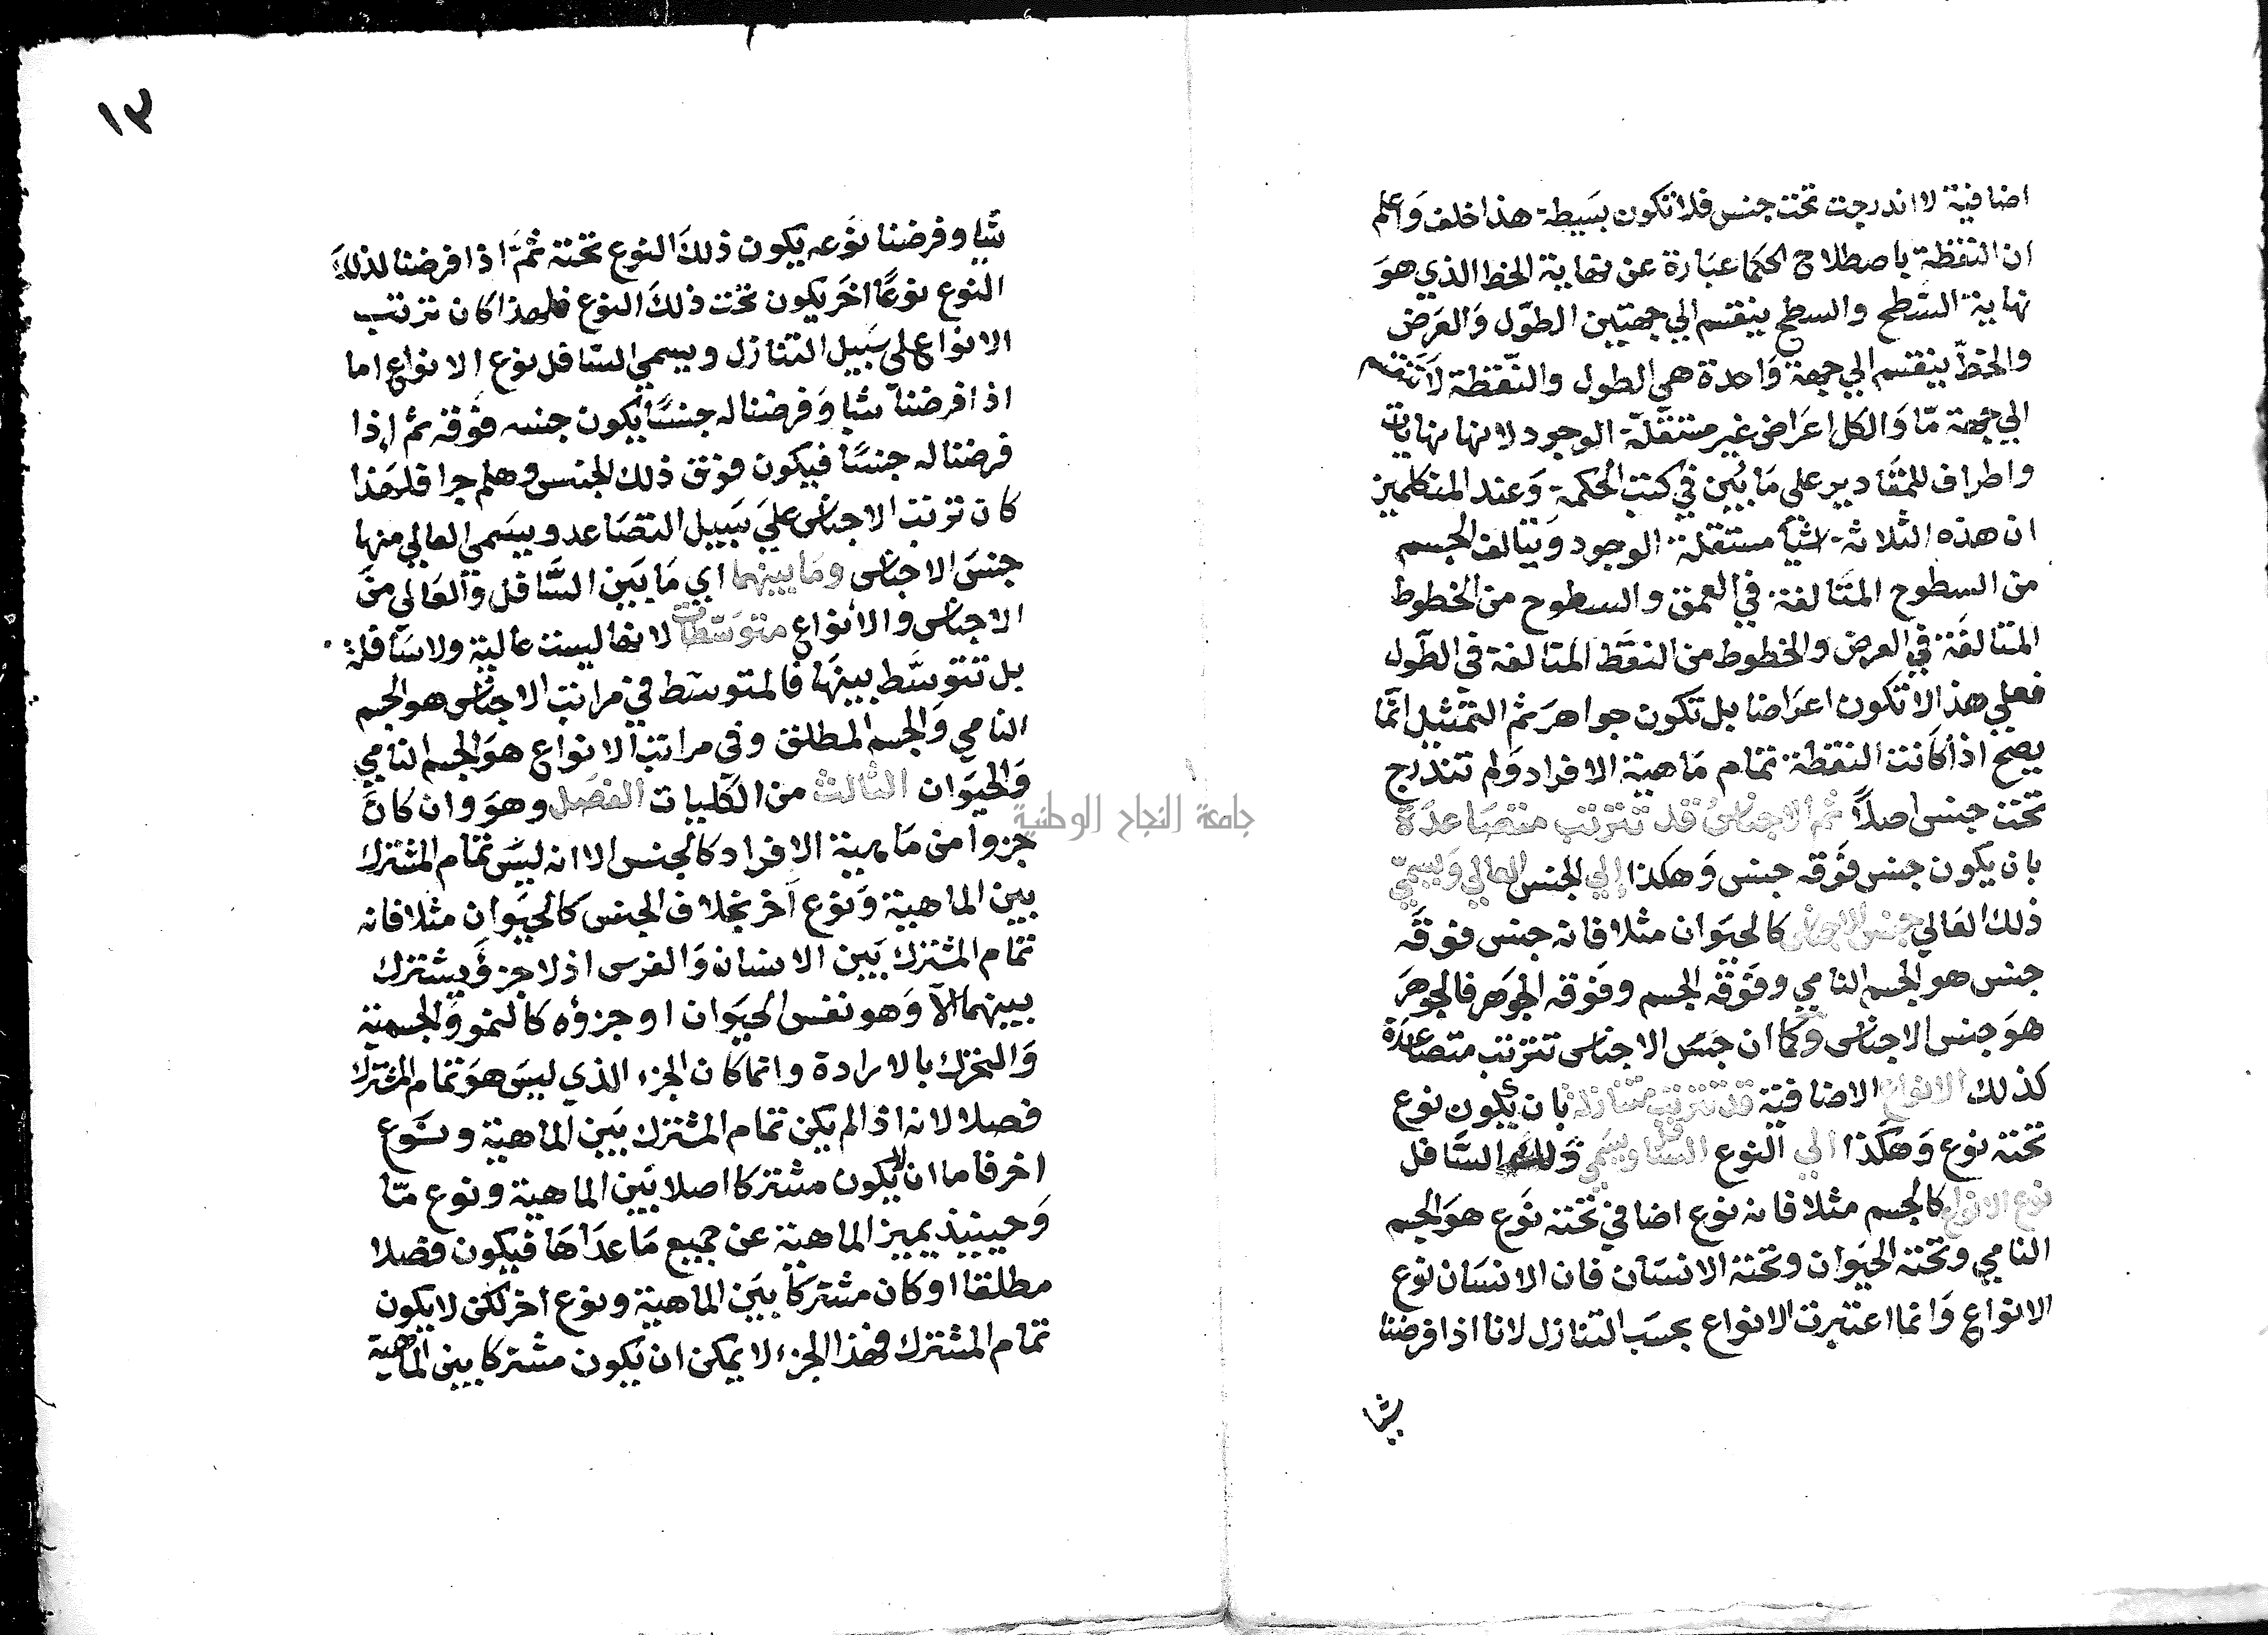 اضافية لاندرجت تحت جنس فلا تكون بسيطة هذا خلف واعلم
ان النقطة باصطلاح الحكما عبارة عن نهاية الخط الذي هو
نهاية السطح والسطح ينقسم الي جهتين الطول والعرض
والخط ينقسم الي جهة واحدة هي الطول والنقطة لا تنقسم
الي جهة ما والكل اعراض غير مستقلة الوجود لانها نهايات
واطراف للمقادير علي ما بين في كتب الحكمة وعند المتكلمين
ان هذه الثلاثة اشيا مستقلة الوجود ويتالف الجسم
من السطوح المتالفة في العمق والسطوح من الخطوط
المتالفة في العرض والخطوط من النقط المتالفة في الطول
فعلي هذا لا تكون اعراضا بل تكون جواهر ثم التمثيل انما
يصح اذا كانت النقطة تمام ماهية الافراد ولم تندرج
تحت جنس اصلا ثم الاجناس قد تترتب متصاعدة
بان يكون جنس فوقه جنس وهكذا إلي الجنس العالي ويسمي
ذلك العالي جنس الاجناس كالحيوان مثلا فانه جنس فوقه
جنس هو الجسم النامي وفوقه الجسم وفوقه الجوهر فالجوهر
هو جنس الاجناس وكما ان جنس الاجناس تترتب متصاعدة
كذلك الانواع الاضافية قد تترتب متنازلة بان يكون نوع
تحته نوع وهكذا الي النوع السافل ويسمي ذلك السافل
نوع الانواع كالجسم مثلا فانه نوع اضافي تحته نوع هو الجسم
النامي وتحته الحيوان وتحته الانسان فان الانسان نوع
الانواع وانما اعتبرت الانواع بحسب التنازل لانا اذا فرضنا
شيا
١٣
شيا وفرضنا نوعه يكون ذلك النوع تحته ثم اذا فرضنا لذلك
النوع نوعا اخر يكون تحت ذلك النوع فلهذا كان ترتيب
الانواع علي سبيل التنازل ويسمي السافل نوع الانواع اما
اذا فرضنا شيا وفرضنا له جنسا يكون جنسه فوقه ثم إذا
فرضنا له جنسا فيكون فوق ذلك الجنس وهلم جرا فلهذا
كان ترتب الاجناس علي سبيل التصاعد ويسمي العالي منها
جنس الاجناس وما بينهما اي ما بين السافل والعالي من
الاجناس والانواع متوسطات لانها ليست عالية ولا سافلة
بل تتوسط بينها فالمتوسط في مراتب الاجناس هو الجسم
النامي والجسم المطلق وفي مراتب الانواع هو الجسم النامي
والحيوان الثالث من الكليات الفصل وهو وان كان
جزوا من ماهية الافراد كالجنس الا انه ليس تمام المشترك
بين الماهية ونوع آخر بخلاف الجنس كالحيوان مثلا فانه
تمام المشترك بين الانسان والفرس اذ لا جزؤ يشترك
بينهما الا وهو نفس الحيوان او جزؤه كالنمو والجسمية
والتحرك بالارادة وانما كان الجزء الذي ليس هو تمام المشترك
فصلا لانه اذا لم يكن تمام المشترك بين الماهية ونوع
اخر فاما ان لا يكون مشتركا اصلا بين الماهية ونوع ما
وحينيذ يميز الماهية عن جميع ما عداها فيكون فصلا
مطلقا او كان مشتركا بين الماهية ونوع اخر لكن لا يكون
تمام المشترك فهذا الجزء لا يمكن ان يكون مشتركا بين الماهية
جامعة النجاح الوطنية